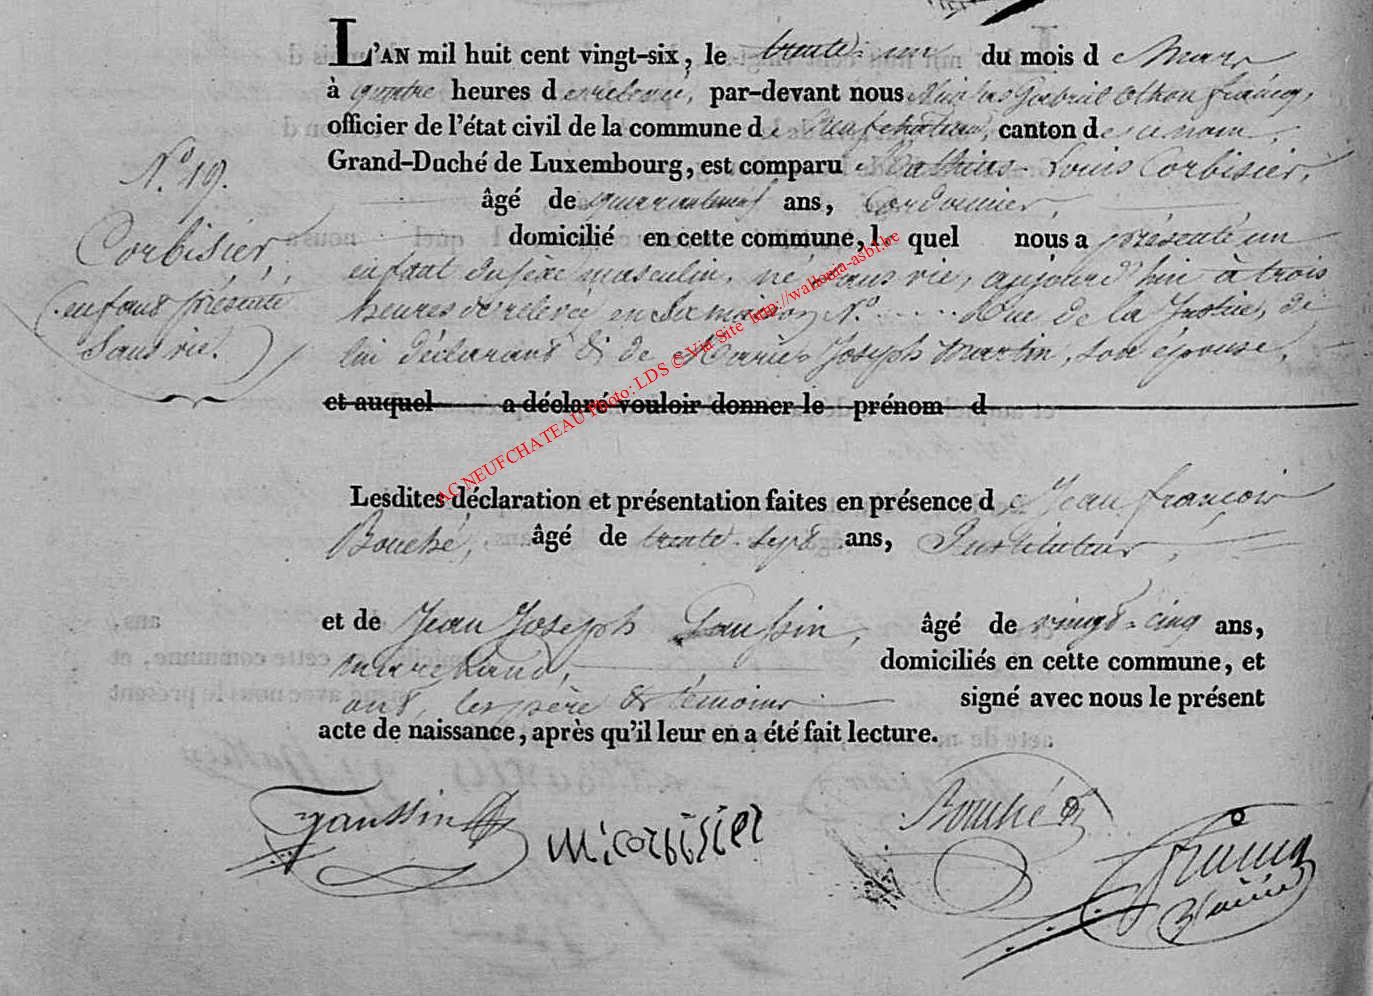 L'AN mil huit cent vingt-six, le trente-un du mois de Mars
à quatre heures de relevée, par-devant nous Nicolas Gabriel Othon francq,
officier de l'état civil de la commune de Neufchateau, canton de ce nom,
Grand-Duché de Luxembourg, est comparu Mathias-Louis Corbisier,
âgé de quaranteneuf ans, Cordonnier,
domicilié en cette commune, lequel nous a présenté un
enfant du sexe masculin, né sans vie, aujourd'hui à trois
heures de relevée en sa maison N.° ..... Rue de la Justice, de
lui déclarant & de Marie Joseph Martin, son épouse,
et auquel a déclaré vouloir donner le prénom d
N.° 19.
Corbisier,
(enfant présenté
sans vie.)
Lesdites déclaration et présentation faites en présence de Jean françois
Bouché, âgé de trente-sept ans, Instituteur,
et de Jean Joseph Gaussin, âgé de vingt-cinq ans,
marchand, domiciliés en cette commune, et
ont, les père & témoins signé avec nous le présent
acte de naissance, après qu'il leur en a été fait lecture.
Gaussin
mlcorbisier
Bouché
francq
AG NEUFCHATEAU Photo: LDS © Via Site http://wallonia-asbl.be